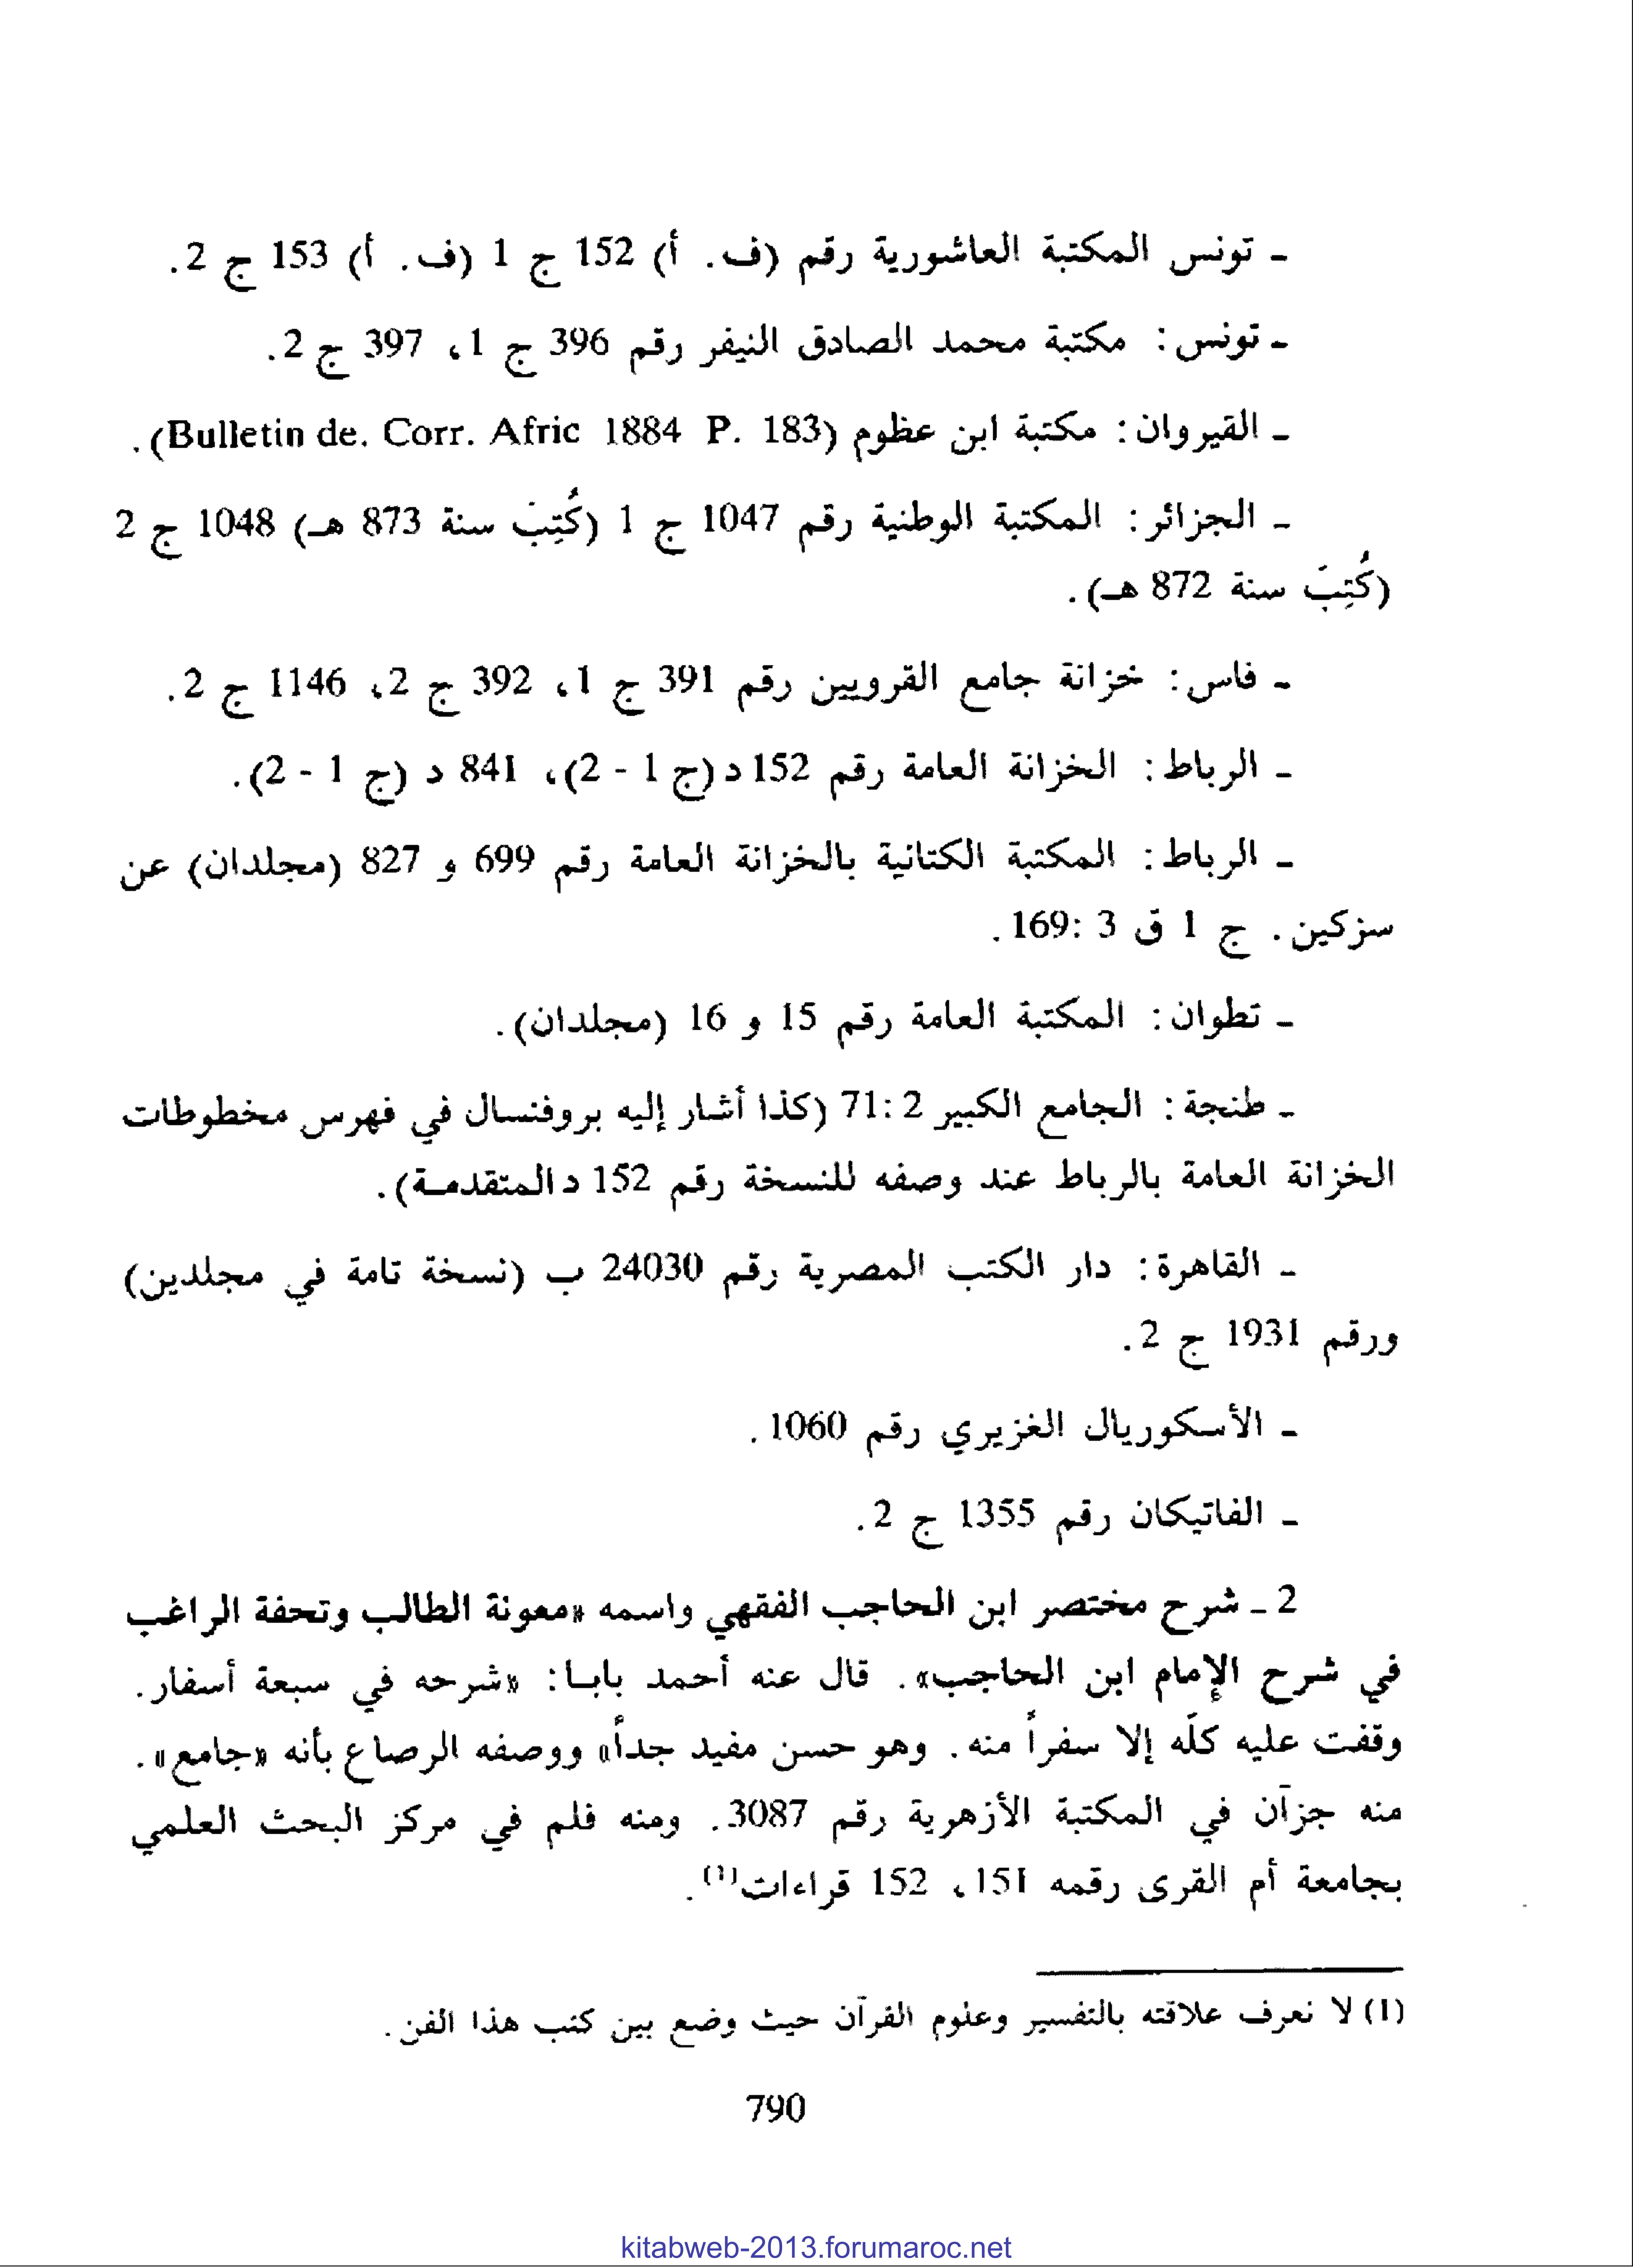 - تونس المكتبة العاشورية رقم (ف. أ) 152 ج 1 (ف. أ) 153 ج 2.
- تونس: مكتبة محمد الصادق النيفر رقم 396 ج 1، 397 ج 2.
- القيروان: مكتبة ابن عظوم (Bulletin de. Corr. Afric 1884 P. 183).
- الجزائر: المكتبة الوطنية رقم 1047 ج 1 (كُتِبَ سنة 873 هـ) 1048 ج 2
(كُتِبَ سنة 872 هـ).
- فاس: خزانة جامع القرويين رقم 391 ج 1، 392 ج 2، 1146 ج 2.
- الرباط: الخزانة العامة رقم 152 د (ج 1 - 2)، 841 د (ج 1 - 2).
- الرباط: المكتبة الكتانية بالخزانة العامة رقم 699 و 827 (مجلدان) عن
سزكين. ج 1 ق 3 :169.
- تطوان: المكتبة العامة رقم 15 و 16 (مجلدان).
- طنجة: الجامع الكبير 2 :71 (كذا أشار إليه بروفنسال في فهرس مخطوطات
الخزانة العامة بالرباط عند وصفه للنسخة رقم 152 د المتقدمـة).
- القاهرة: دار الكتب المصرية رقم 24030 ب (نسخة تامة في مجلدين)
ورقم 1931 ج 2.
- الأسكوريال الغزيري رقم 1060.
- الفاتيكان رقم 1355 ج 2.
2 - شرح مختصر ابن الحاجب الفقهي واسمه «معونة الطالب وتحفة الراغب
في شرح الإمام ابن الحاجب». قال عنه أحمد بابـا: «شرحه في سبعة أسفار.
وقفت عليه كلّه إلا سفراً منه. وهو حسن مفيد جداً» ووصفه الرصاع بأنه «جامع».
منه جزآن في المكتبة الأزهرية رقم 3087. ومنه فلم في مركز البحث العلمي
بجامعة أم القرى رقمه 151، 152 قراءات(1).
(1) لا نعرف علاقته بالتفسير وعلوم القرآن حيث وضع بين كتب هذا الفن.
790
kitabweb-2013.forumaroc.net